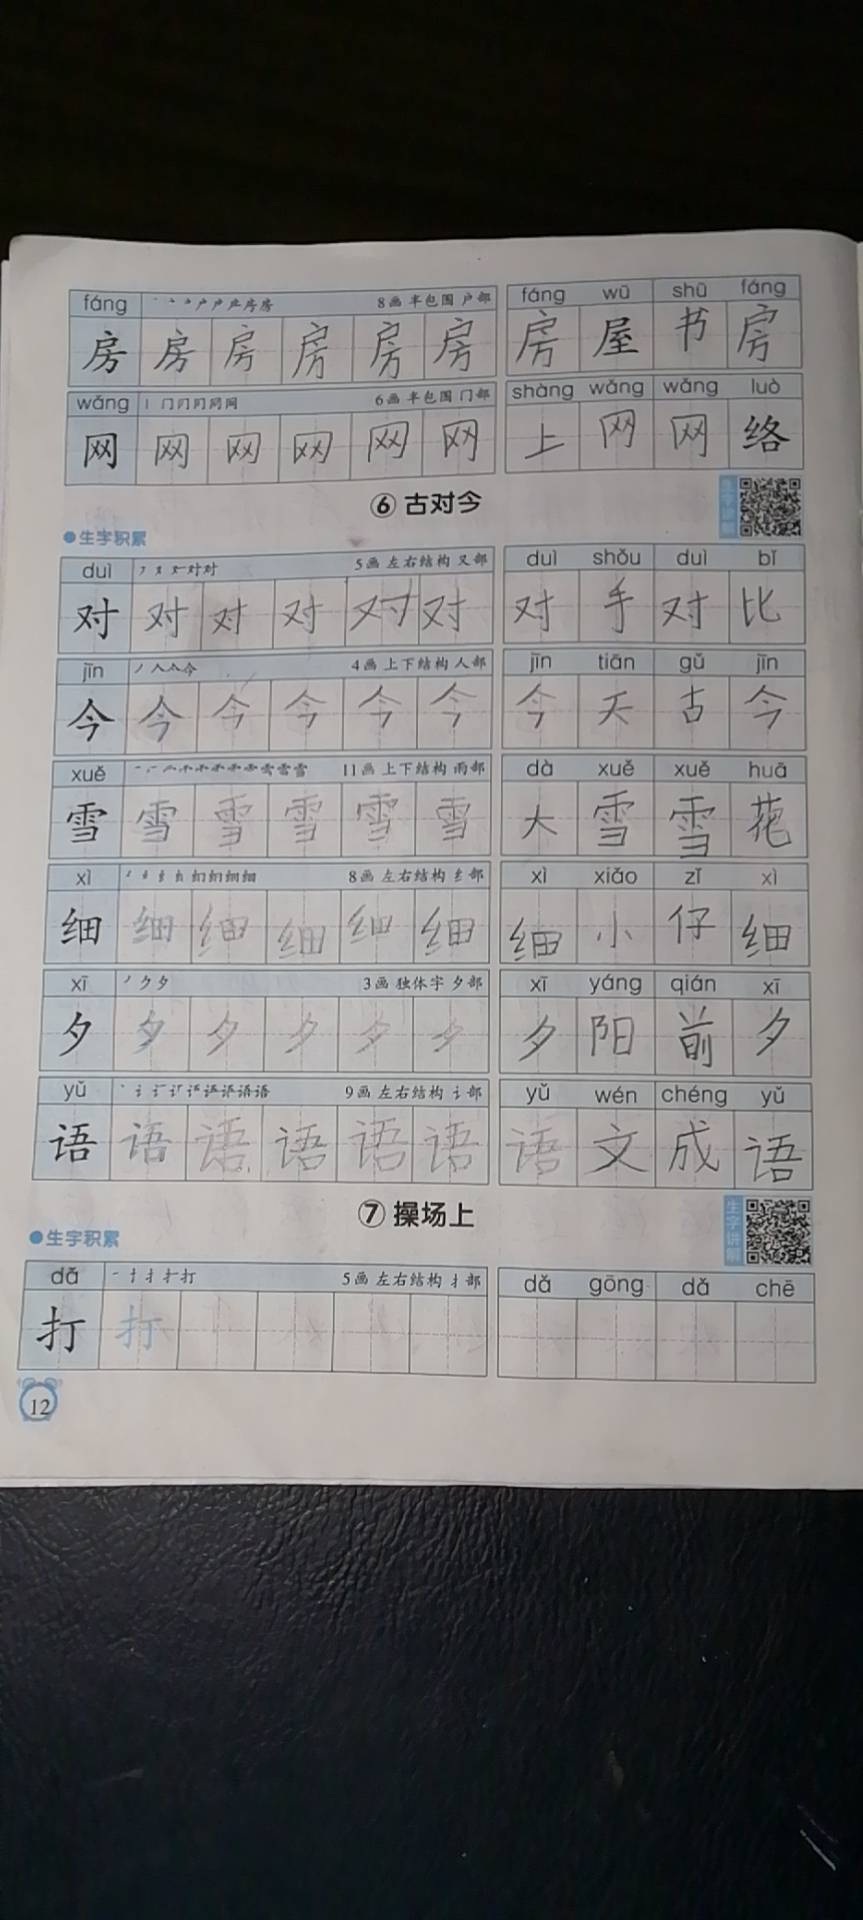 fáng 8画 半包围 户部 fáng wū shū fáng
房 房 房 房 房 房 房 屋 书 房
wǎng 6画 半包围 门部 shàng wǎng wǎng luò
网 网 网 网 网 网 上 网 网 络
⑥ 古对今
生字讲解
●生字积累
duì 5画 左右结构 又部 duì shǒu duì bǐ
对 对 对 对 对 对 对 手 对 比
jīn 4画 上下结构 人部 jīn tiān gǔ jīn
今 今 今 今 今 今 今 天 古 今
xuě 11画 上下结构 雨部 dà xuě xuě huā
雪 雪 雪 雪 雪 雪 大 雪 雪 花
xì 8画 左右结构 纟部 xì xiǎo zǐ xì
细 细 细 细 细 细 细 小 仔 细
xī 3画 独体字 夕部 xī yáng qián xī
夕 夕 夕 夕 夕 夕 夕 阳 前 夕
yǔ 9画 左右结构 讠部 yǔ wén chéng yǔ
语 语 语 语 语 语 语 文 成 语
⑦ 操场上
生字讲解
●生字积累
dǎ 5画 左右结构 扌部 dǎ gōng dǎ chē
打 打
12